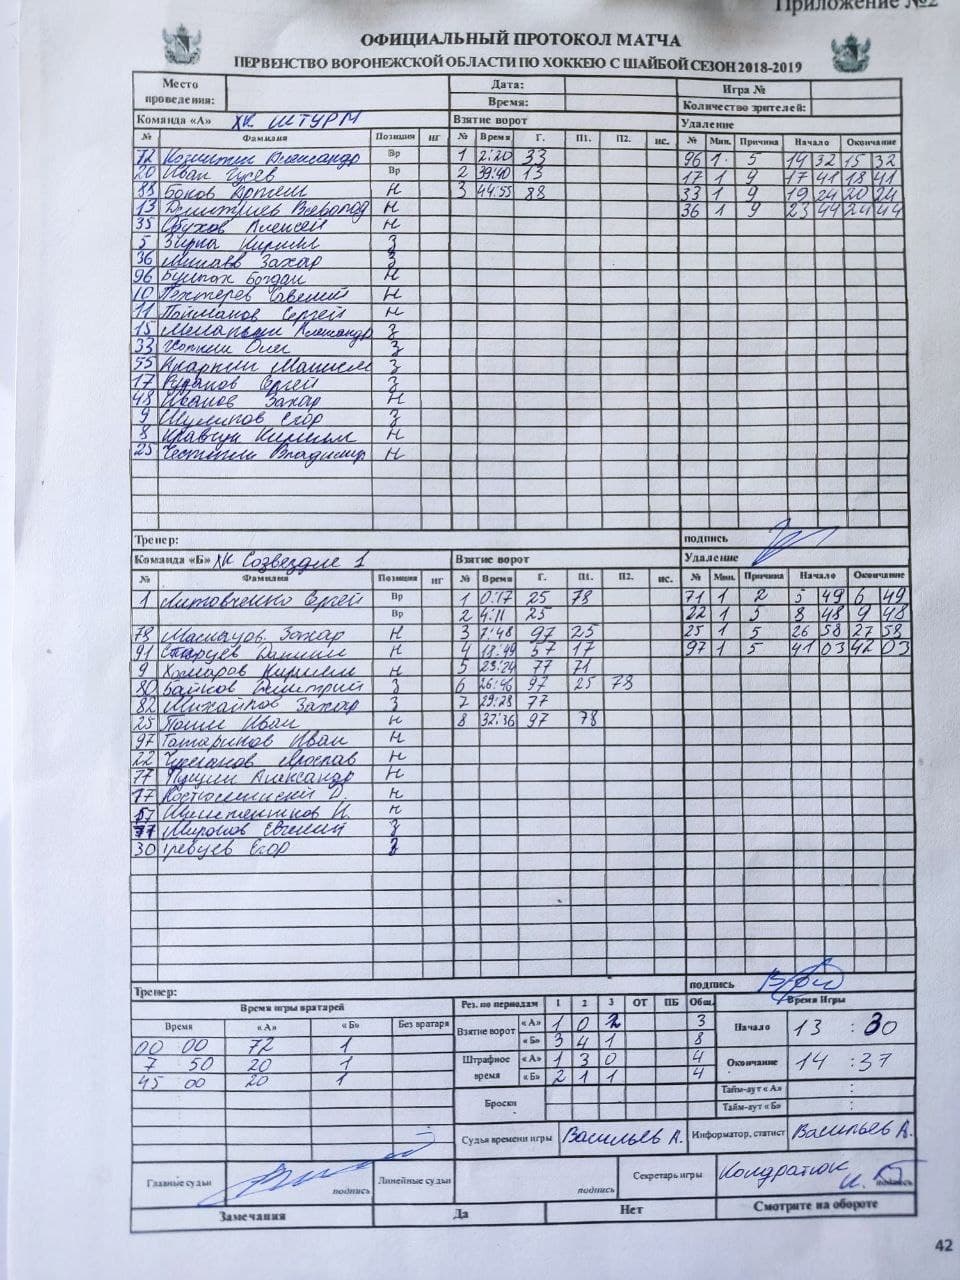 Приложение №2
ОФИЦИАЛЬНЫЙ ПРОТОКОЛ МАТЧА
ПЕРВЕНСТВО ВОРОНЕЖСКОЙ ОБЛАСТИ ПО ХОККЕЮ С ШАЙБОЙ СЕЗОН 2018-2019
Место проведения: Дата: Игра №
Время: Количество зрителей:
Команда «А» ХК ШТУРМ Взятие ворот Удаление
№ Фамилия Позиция НГ № Время Г. П1. П2. ис. № Мин. Причина Начало Окончание
72 Александр Вр 1 2:20 33 96 1 5 14 32 15 32
20 Иван Гусев Вр 2 39:40 13 17 1 9 17 41 18 41
88 Боков Артем Н 3 44:55 88 33 1 9 19 24 20 24
13 Дмитриев Всеволод Н 36 1 9 23 44 24 44
35 Обухов Алексей Н
5 Зирка Кирилл З
36 Захар З
96 Булпах Богдан Н
10 Пехтерев Савелий Н
11 Пойманов Сергей Н
15 Александр З
33 Олег З
55 З
17 Рудаков Сергей З
48 Иванов Захар Н
9 Шулипов Егор З
8 Кравчук Кирилл Н
25 Владимир Н
Тренер: подпись
Команда «Б» ХК Созвездие 1 Взятие ворот Удаление
№ Фамилия Позиция НГ № Время Г. П1. П2. ис. № Мин. Причина Начало Окончание
1 Литовченко Сергей Вр 1 0:17 25 78 71 1 2 5 49 6 49
Вр 2 4:11 25 22 1 5 8 48 9 48
78 Захар Н 3 7:48 97 25 25 1 5 26 58 27 58
91 Старцев Даниил Н 4 18:49 57 17 97 1 5 41 03 42 03
9 Комаров Кирилл Н 5 23:24 77 71
80 Байков Дмитрий З 6 26:46 97 25 78
82 Михайлов Захар З 7 29:28 77
25 Иван Н 8 32:36 97 78
97 Татаринов Иван Н
22 Ярослав Н
77 Пущин Александр Н
17 Д. Н
57 И. Н
71 Миронов Евгений З
30 Гревцев Егор З
Тренер: подпись
Время игры вратарей Рез. по периодам 1 2 3 ОТ ПБ Общ. Время Игры
Время «А» «Б» Без вратаря Взятие ворот «А» 1 0 2 3 Начало 13 : 30
00 00 72 1 «Б» 3 4 1 8
7 50 20 1 Штрафное время «А» 1 3 0 4 Окончание 14 : 37
45 00 20 1 «Б» 2 1 1 4
Тайм-аут «А» :
Броски Тайм-аут «Б» :
Судья времени игры Васильев А. Информатор, статист Васильев А.
Главные судьи подпись Линейные судьи подпись Секретарь игры Кондратюк И. подпись
Замечания Да Нет Смотрите на обороте
42